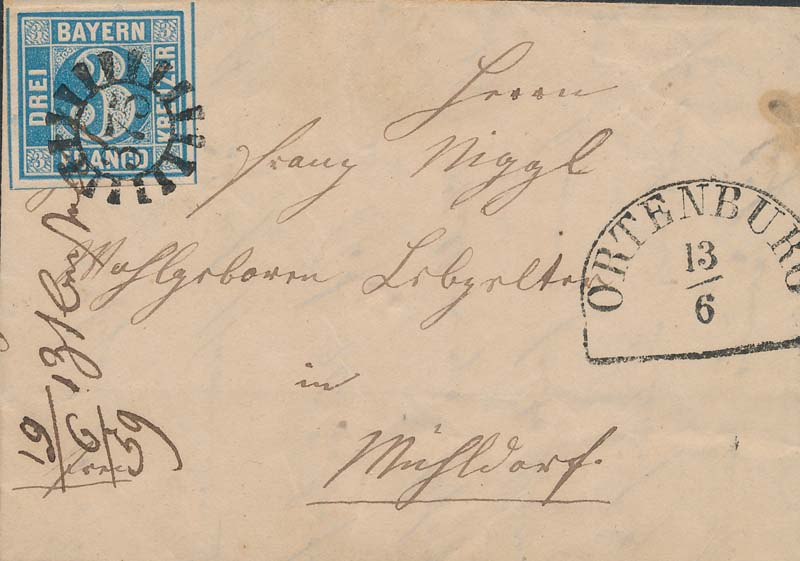 BAYERN
DREI
KREUZER
FRANCO
Herrn
Franz Niggl
Wohlgeboren Lebzelter
in
Mühldorf.
ORTENBURG
13
6
19
6
59